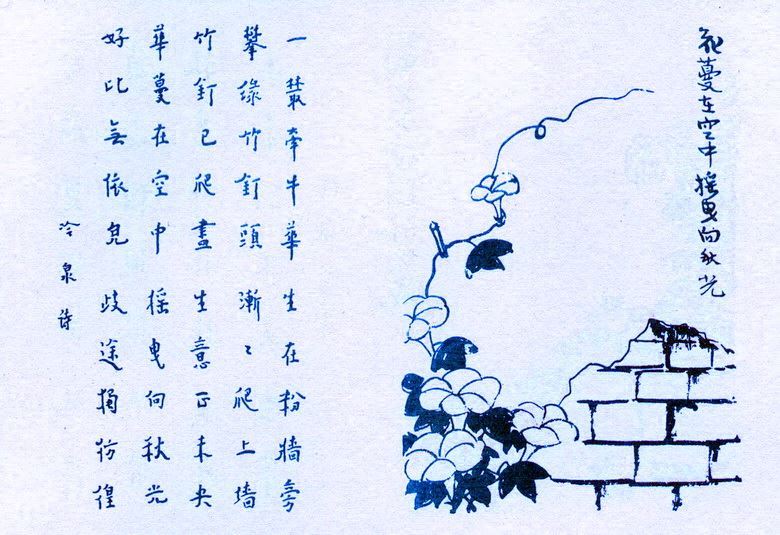 花蔓在空中搖曳向秋光
一叢牽牛華 生在粉牆旁
攀緣竹釘頭 漸〻爬上墻
竹釘已爬盡 生意正未央
華蔓在空中 搖曳向秋光
好比無依兒 歧途獨彷徨
冷泉詩